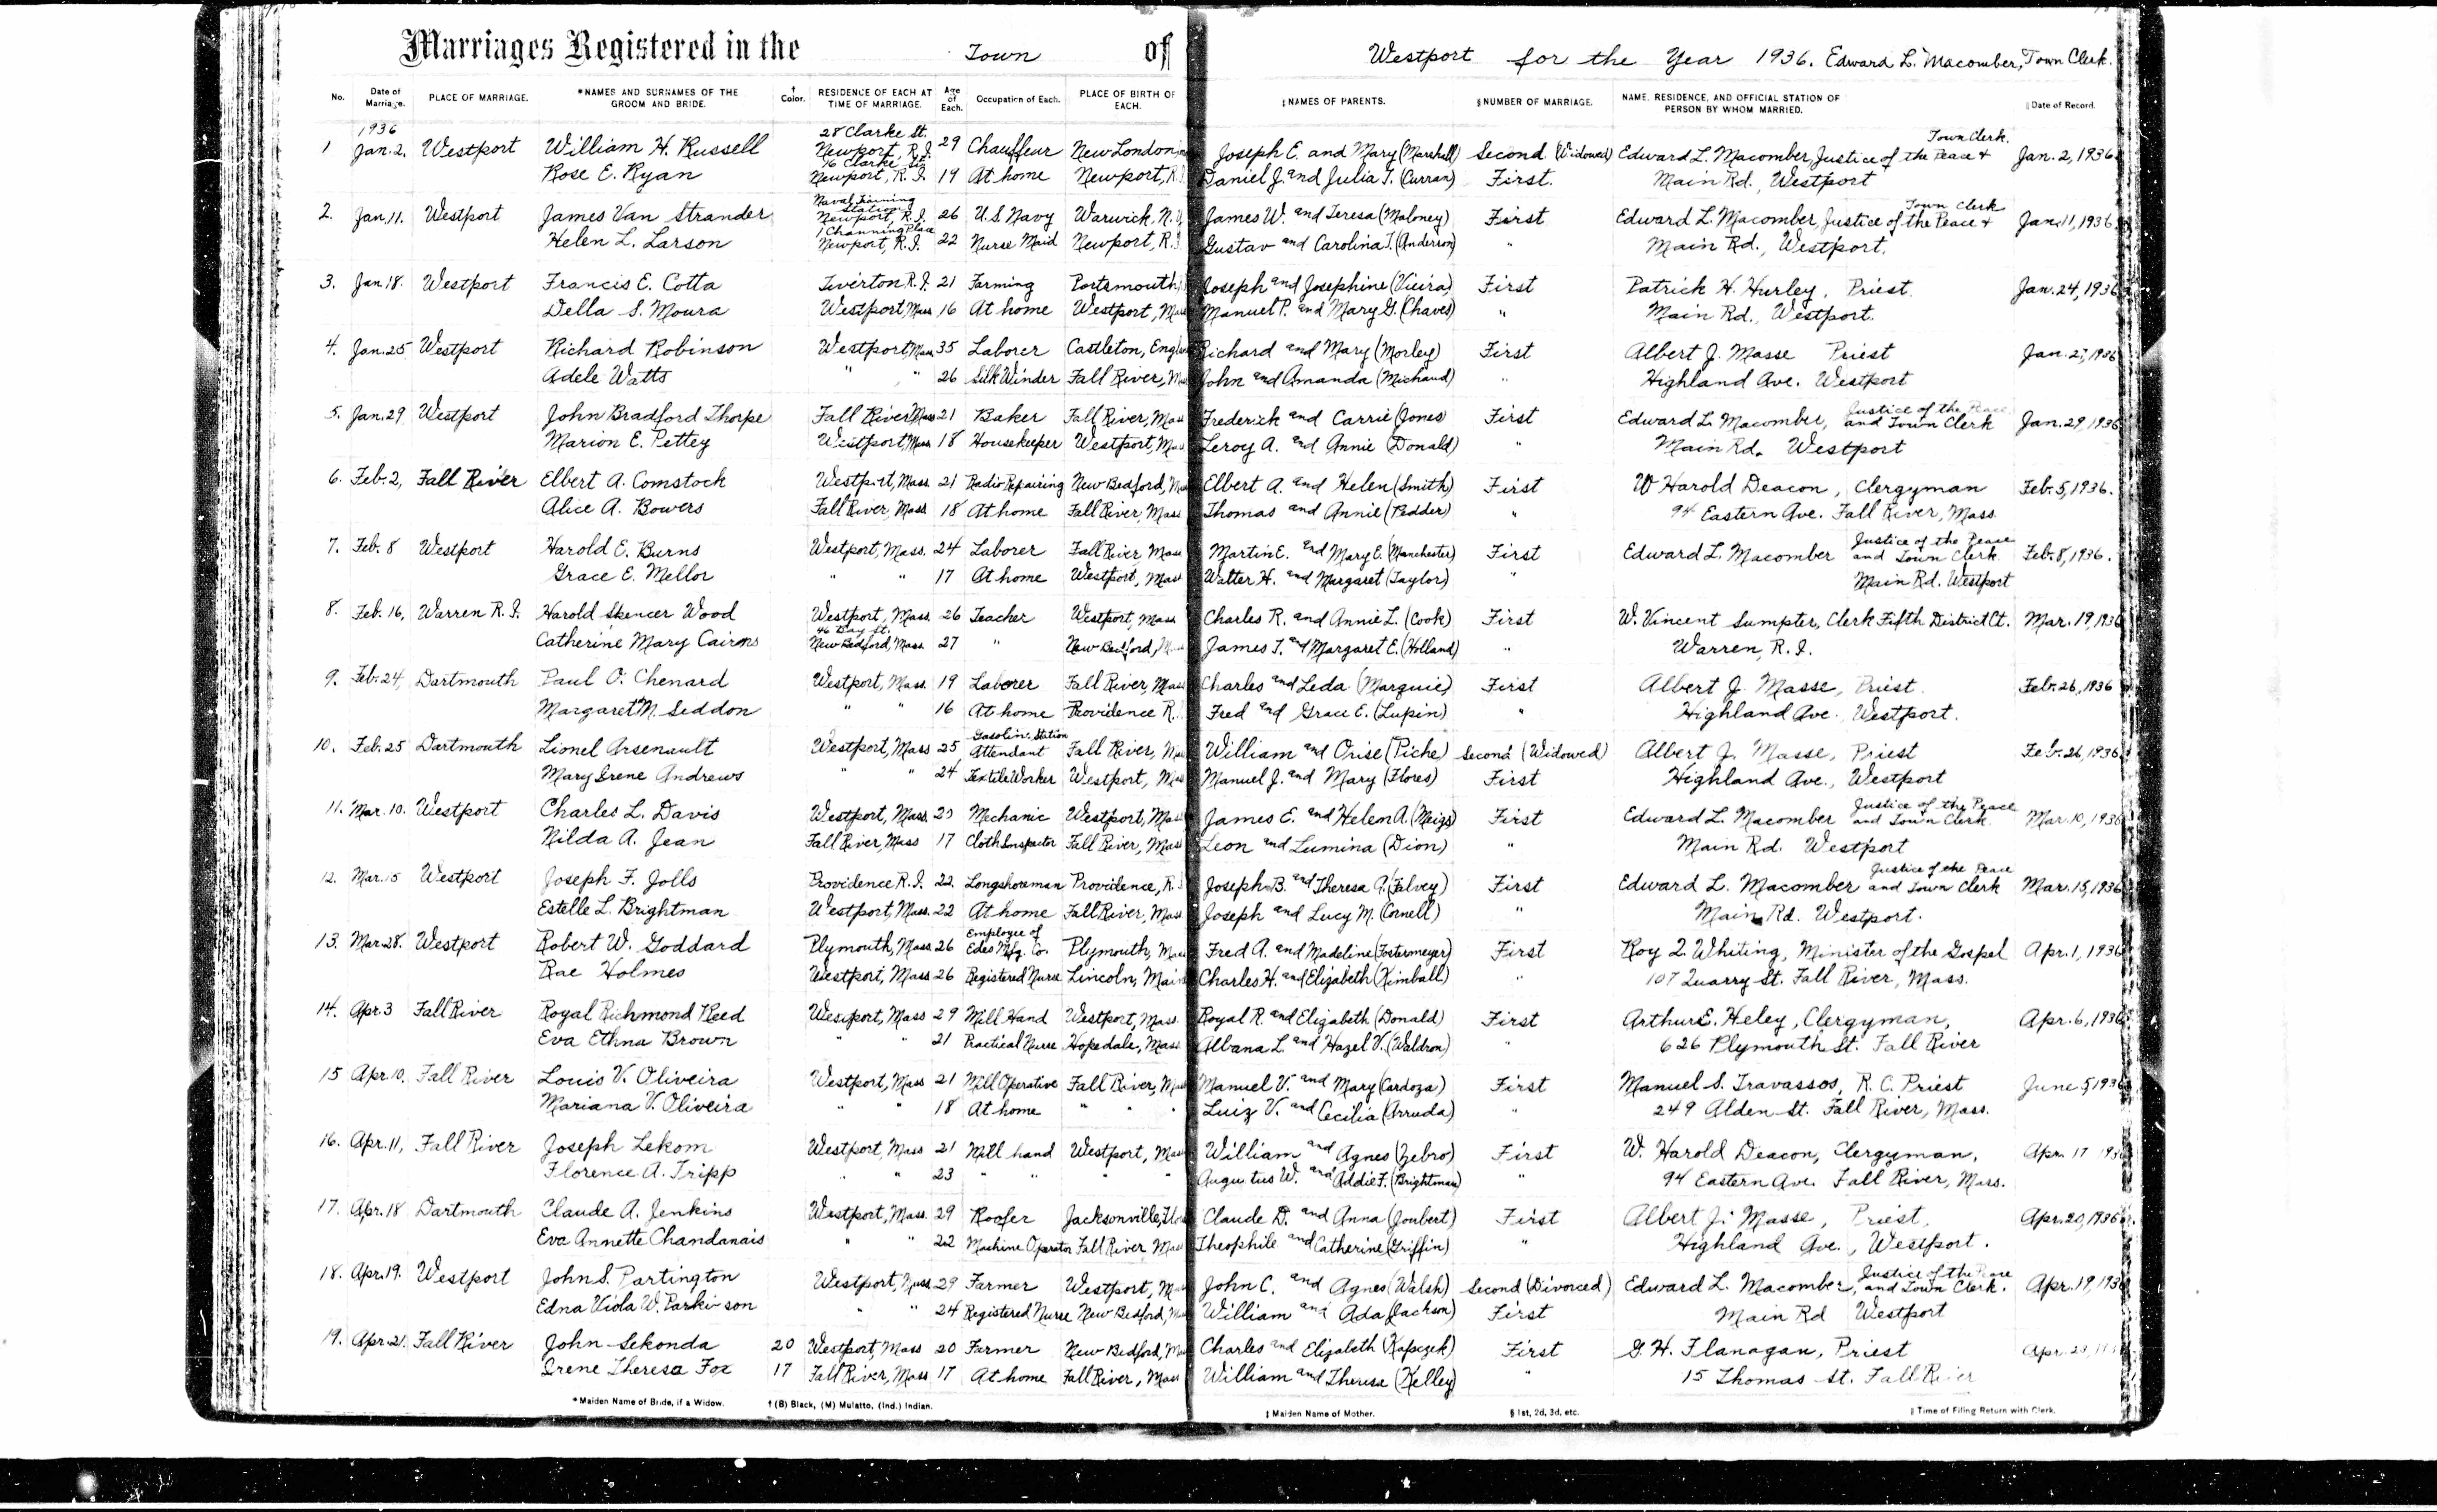 Marriages Registered in the Town of Westport for the Year 1936. Edward L. Macomber, Town Clerk.
No. Date of Marriage. PLACE OF MARRIAGE. *NAMES AND SURNAMES OF THE GROOM AND BRIDE. †Color. RESIDENCE OF EACH AT TIME OF MARRIAGE. Age of Each. Occupation of Each. PLACE OF BIRTH OF EACH. ‡NAMES OF PARENTS. §NUMBER OF MARRIAGE. NAME, RESIDENCE, AND OFFICIAL STATION OF PERSON BY WHOM MARRIED. ‖Date of Record.
1936
28 Clarke St. Town Clerk.
1 Jan. 2. Westport William H. Russell Newport, R.I. 29 Chauffeur New London Joseph E. and Mary (Marshall) Second (Widowed) Edward L. Macomber, Justice of the Peace + Jan. 2, 1936
16 Clarke St.
Rose E. Ryan Newport, R.I. 19 At home Newport, R. Daniel J. and Julia T. (Curran) First. Main Rd., Westport
Naval Training Station Town Clerk
2. Jan. 11. Westport James Van Strander Newport, R.I. 26 U.S. Navy Warwick, N.Y. James W. and Teresa (Maloney) First Edward L. Macomber, Justice of the Peace + Jan. 11, 1936
1 Channing Place
Helen L. Larson Newport, R.I. 22 Nurse Maid Newport, R.I. Gustav and Carolina T. (Anderson) " Main Rd., Westport.
3. Jan. 18. Westport Francis E. Cotta Tiverton R.I. 21 Farming Portsmouth, Joseph and Josephine (Vieira) First Patrick H. Hurley, Priest. Jan. 24, 1936
Della S. Moura Westport, Mass 16 At home Westport, Mass Manuel P. and Mary G. (Chaves) " Main Rd., Westport.
4. Jan. 25 Westport Richard Robinson Westport, Mass 35 Laborer Castleton, Engla Richard and Mary (Morley) First Albert J. Masse Priest Jan. 27, 1936
Adele Watts " " 26 Silk Winder Fall River, Ma John and Amanda (Michaud) " Highland Ave. Westport
5. Jan. 29 Westport John Bradford Thorpe Fall River Mass 21 Baker Fall River, Mass Frederick and Carrie (Jones) First Edward L. Macomber, Justice of the Peace and Town Clerk Jan. 29, 1936
Marion E. Pettey Westport, Mass. 18 Housekeeper Westport, Mass Leroy A. and Annie (Donald) " Main Rd. Westport
6. Feb. 2, Fall River Elbert A. Comstock Westport, Mass. 21 Radio Repairing New Bedford, Ma Elbert A. and Helen (Smith) First W Harold Deacon, Clergyman Feb. 5, 1936.
Alice A. Bowers Fall River, Mass 18 At home Fall River, Mass Thomas and Annie (Pedder) " 94 Eastern Ave. Fall River, Mass.
7. Feb. 8 Westport Harold E. Burns Westport, Mass. 24 Laborer Fall River, Mass Martin E. and Mary E. (Manchester) First Edward L. Macomber Justice of the Peace and Town Clerk Feb. 8, 1936.
Grace E. Mellor " " 17 At home Westport, Mass Walter H. and Margaret (Taylor) " Main Rd. Westport
8. Feb. 16, Warren R.I. Harold Spencer Wood Westport, Mass. 26 Teacher Westport, Mass Charles R. and Annie L. (Cook) First W. Vincent Sumpter, Clerk Fifth District Ct. Mar. 19, 1936
46 Day St.
Catherine Mary Cairns New Bedford, Mass. 27 " New Bedford, Mass James T. and Margaret E. (Holland) " Warren, R.I.
9. Feb. 24, Dartmouth Paul O. Chenard Westport, Mass. 19 Laborer Fall River, Mass Charles and Leda (Marquie) First Albert J. Masse, Priest. Feb. 26, 1936
Margaret M. Seddon " " 16 At home Providence R. Fred and Grace E. (Lupin) " Highland Ave., Westport.
10. Feb. 25 Dartmouth Lionel Arsenault Westport, Mass 25 Gasoline Station Attendant Fall River, Ma William and Orise (Piche) Second (Widowed) Albert J. Masse, Priest Feb. 26, 1936
Mary Irene Andrews " " 24 Textile Worker Westport, Mass Manuel J. and Mary (Flores) First Highland Ave., Westport
11. Mar. 10. Westport Charles L. Davis Westport, Mass. 20 Mechanic Westport, Mass James E. and Helen A. (Meigs) First Edward L. Macomber Justice of the Peace and Town Clerk. Mar. 10, 1936
Nilda A. Jean Fall River, Mass 17 Cloth Inspector Fall River, Mass Leon and Lumina (Dion) " Main Rd. Westport
12. Mar. 15 Westport Joseph F. Jolls Providence R.I. 22 Longshoreman Providence, R.I. Joseph B. and Theresa (Falvey) First Edward L. Macomber Justice of the Peace and Town Clerk Mar. 15, 1936
Estelle L. Brightman Westport, Mass. 22 At home Fall River, Mass Joseph and Lucy M. (Cornell) " Main Rd. Westport.
13. Mar. 28. Westport Robert W. Goddard Plymouth, Mass. 26 Employee of Edes Mfg. Co. Plymouth, Mass Fred A. and Madeline (Fostermeyer) First Roy Q. Whiting, Minister of the Gospel Apr. 1, 1936
Rae Holmes Westport, Mass 26 Registered Nurse Lincoln, Maine Charles H. and Elizabeth (Kimball) " 107 Quarry St. Fall River, Mass.
14. Apr. 3 Fall River Royal Richmond Reed Westport, Mass 29 Mill Hand Westport, Mass. Royal R. and Elizabeth (Donald) First Arthur E. Heley, Clergyman, Apr. 6, 1936
Eva Ethna Brown " " 21 Practical Nurse Hopedale, Mass. Albana L. and Hazel V. (Waldron) " 626 Plymouth St. Fall River
15 Apr. 10. Fall River Louis V. Oliveira Westport, Mass 21 Mill Operative Fall River, Mass Manuel V. and Mary (Cardoza) First Manuel S. Travassos, R.C. Priest June 5, 1936
Mariana V. Oliveira " " 18 At home " " " Luiz V. and Cecilia (Arruda) " 249 Alden St. Fall River, Mass.
16. Apr. 11, Fall River Joseph Lekom Westport, Mass 21 Mill hand Westport, Mass William and Agnes (Zebro) First W. Harold Deacon, Clergyman, Apr. 17 1936
Florence A. Tripp " " 23 " " " " Augustus W. and Addie F. (Brightman) " 94 Eastern Ave. Fall River, Mass.
17. Apr. 18 Dartmouth Claude A. Jenkins Westport, Mass. 29 Roofer Jacksonville, Flor Claude D. and Anna (Joubert) First Albert J. Masse, Priest, Apr. 20, 1936
Eva Annette Chandanais " " 22 Machine Operator Fall River Mass Theophile and Catherine (Griffin) " Highland Ave., Westport.
18. Apr. 19. Westport John S. Partington Westport, Mass 29 Farmer Westport, Ma John C. and Agnes (Walsh) Second (Divorced) Edward L. Macomber, Justice of the Peace and Town Clerk. Apr. 19, 1936
Edna Viola W. Parkinson " " 24 Registered Nurse New Bedford, Ma William and Ada (Jackson) First Main Rd Westport
19. Apr. 21. Fall River John Sekonda 20 Westport, Mass 20 Farmer New Bedford, Ma Charles and Elizabeth (Kapsczek) First G. H. Flanagan, Priest Apr. 23,
Irene Theresa Fox 17 Fall River, Mass 17 At home Fall River, Mass William and Theresa (Kelley) " 15 Thomas St. Fall River
*Maiden Name of Bride, if a Widow. †(B) Black, (M) Mulatto, (Ind.) Indian. ‡Maiden Name of Mother. §1st, 2d, 3d, etc. ‖Time of Filing Return with Clerk.